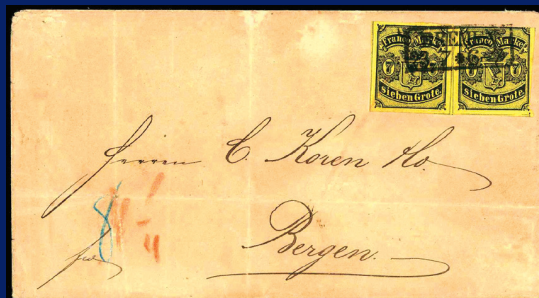 Franco Marke Franco Marke
7 7 7 7
Sieben Grote. Sieben Grote.
BREMEN
Herren C. Koren &Co
Bergen.
8
frco